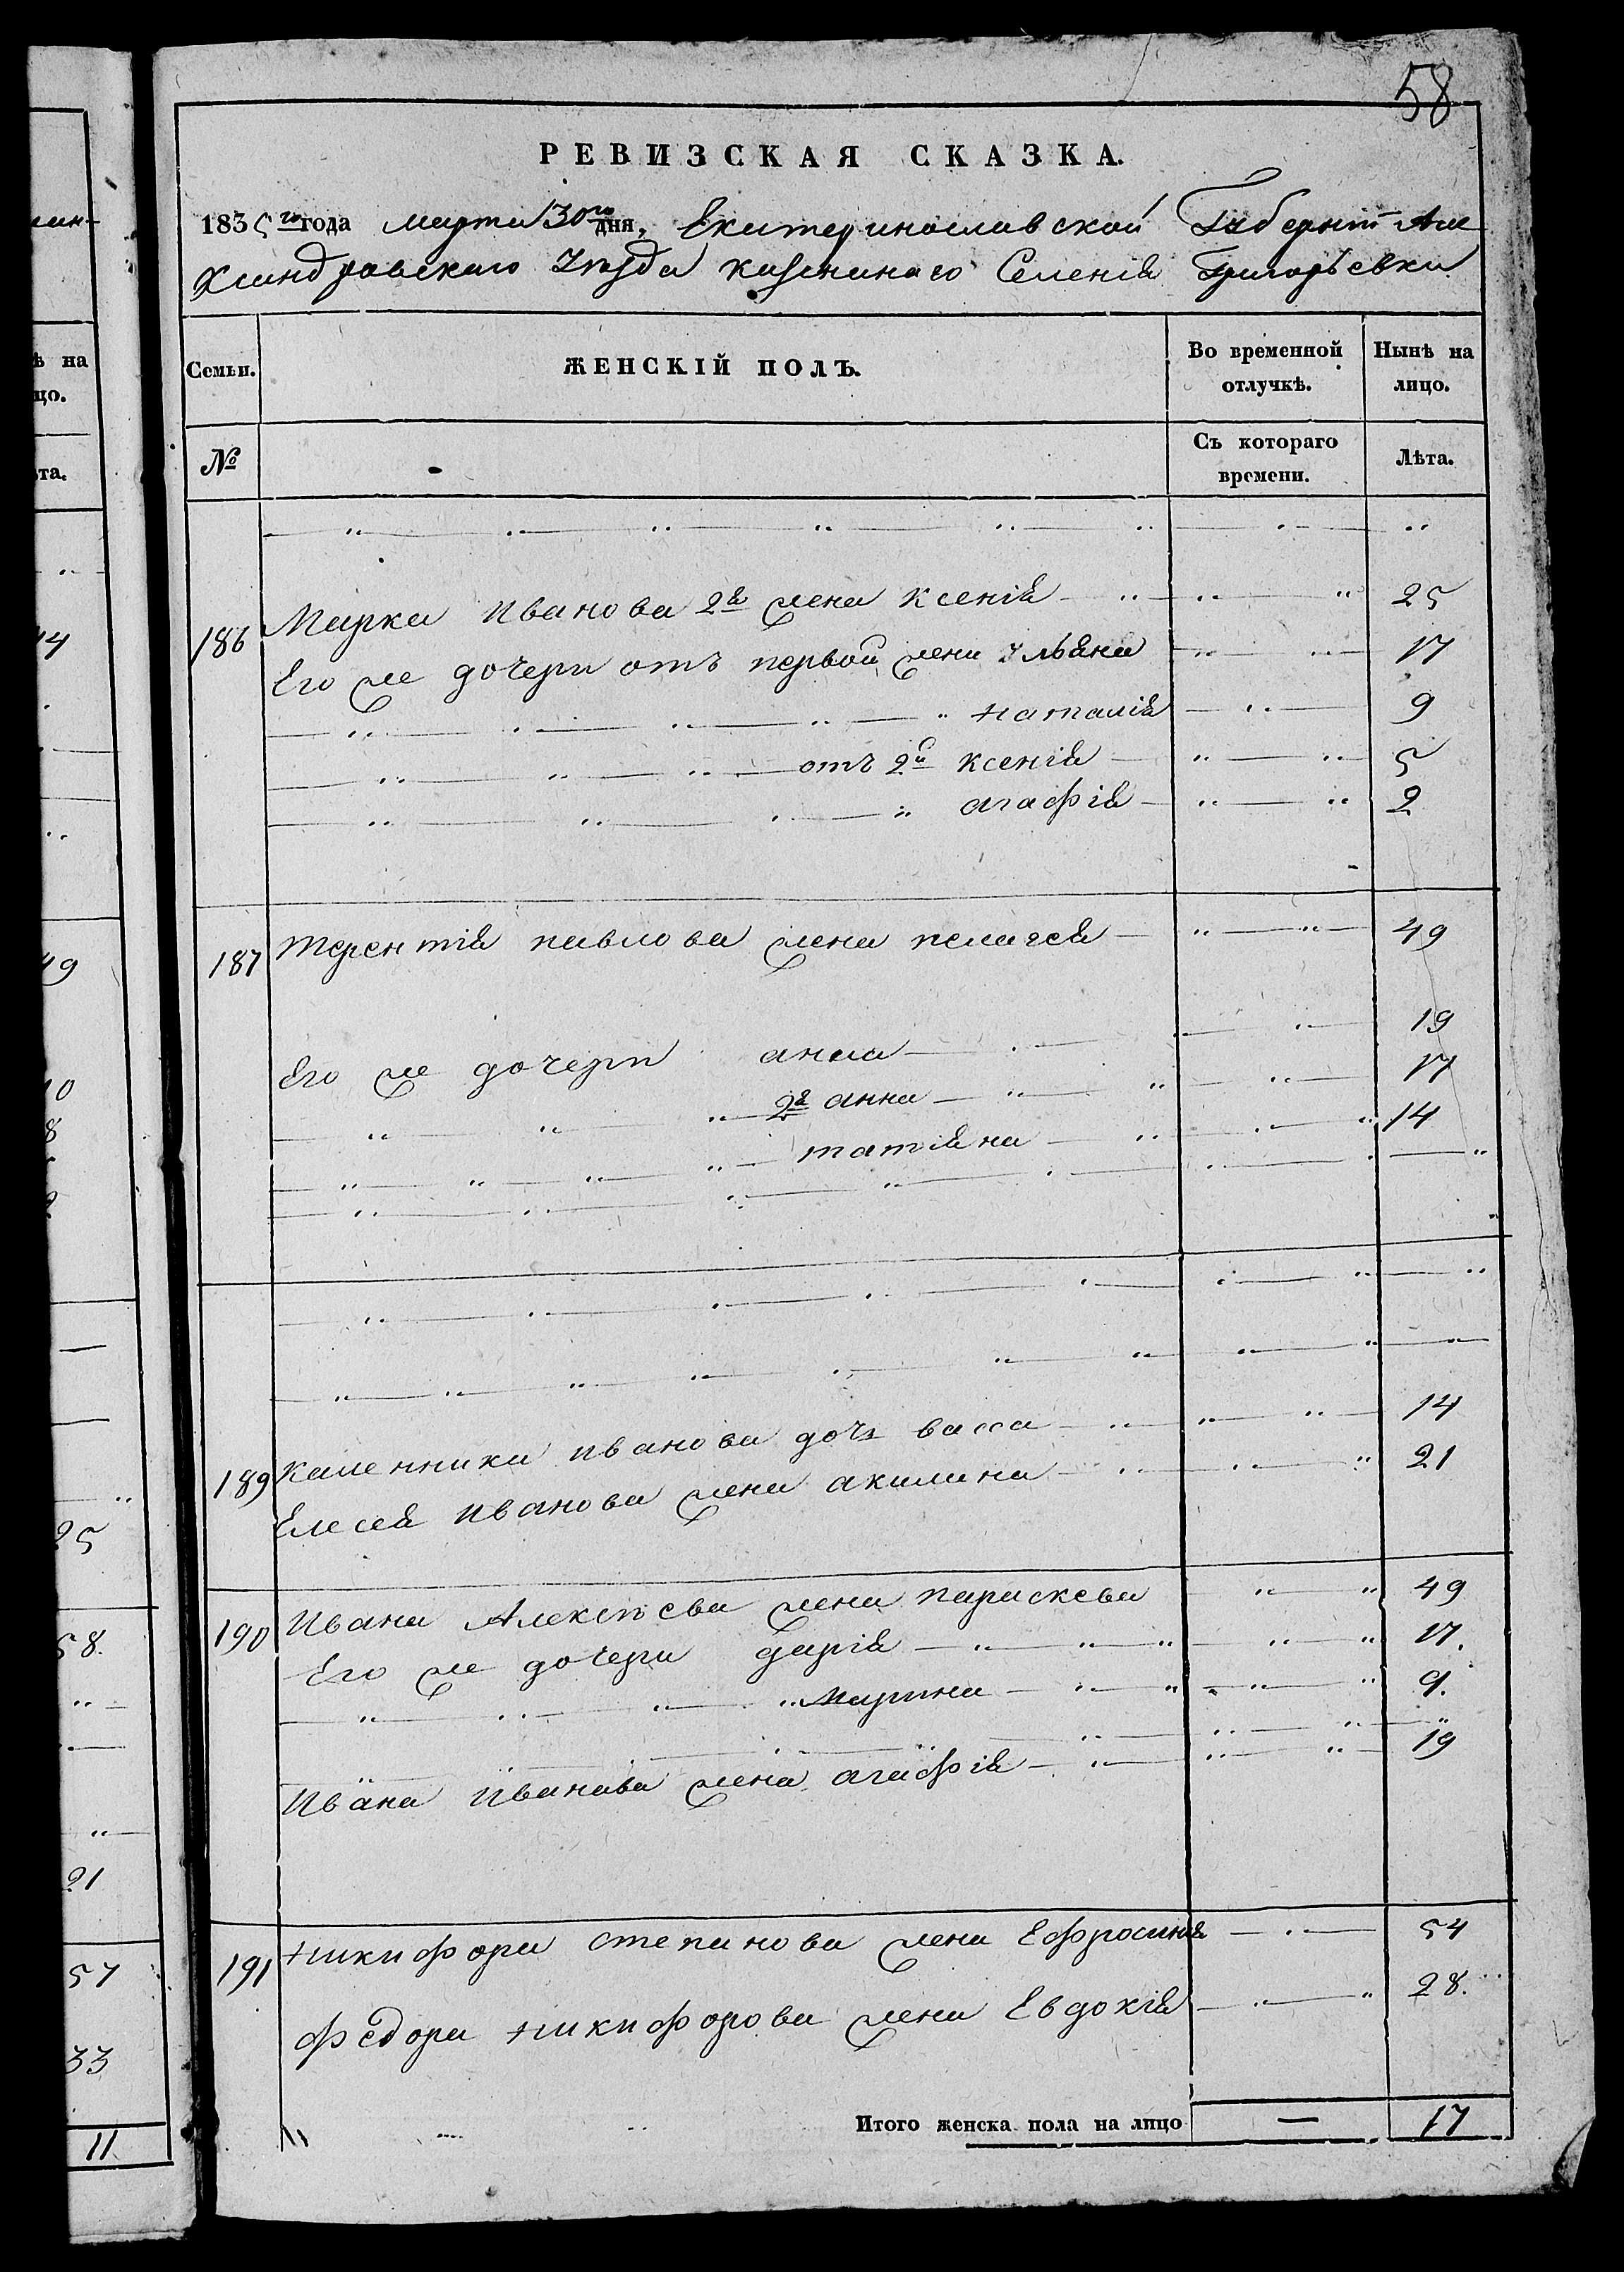 58
РЕВИЗСКАЯ СКАЗКА.
1835 го года марта 30 го дня, Екатеринославской Губерніи Але
ксандровскаго Уезда казеннаго Селенія Григорьевки
Семьи. ЖЕНСКІЙ ПОЛЪ. Во временной отлучкѣ. Нынѣ на лицо.
№ Съ котораго времени. Лѣта.
186 Марка Иванова 2я жена Ксенія 25
Его же дочери отъ первой жены Ульяна 17
Наталія 9
отъ 2й Ксенія 5
агафія 2
187 Терентія павлова жена пелагея 49
Его же дочери анна 19
2я анна 17
татіяна 14
189 Калинника иванова дочь васса 14
Елесея Иванова жена акилина 21
190 Ивана Алексѣева жена параскева 49
Его же дочери дарія 17.
Марина 9.
Ивана Иванова жена агафія 19
191 Никифора степанова жена Ефросинія 54
федора никифорова жена Евдокія 28.
Итого женска пола на лицо — 17
ѣ на
цо.
ѣта.
14
49
10
8
2
25
58.
21
57
33
11